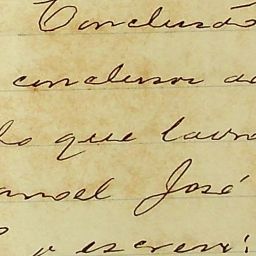 Conclusão
conclusos ao
do que lavro
anoel José
o escrevi: